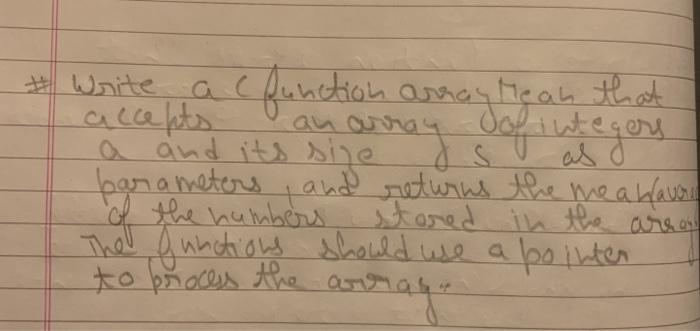 # Write a C function arrayMean that
accepts an array of integers
a and its size s as
parameters, and returns the mean(aver
of the numbers stored in the array.
The functions should use a pointer
to process the array.